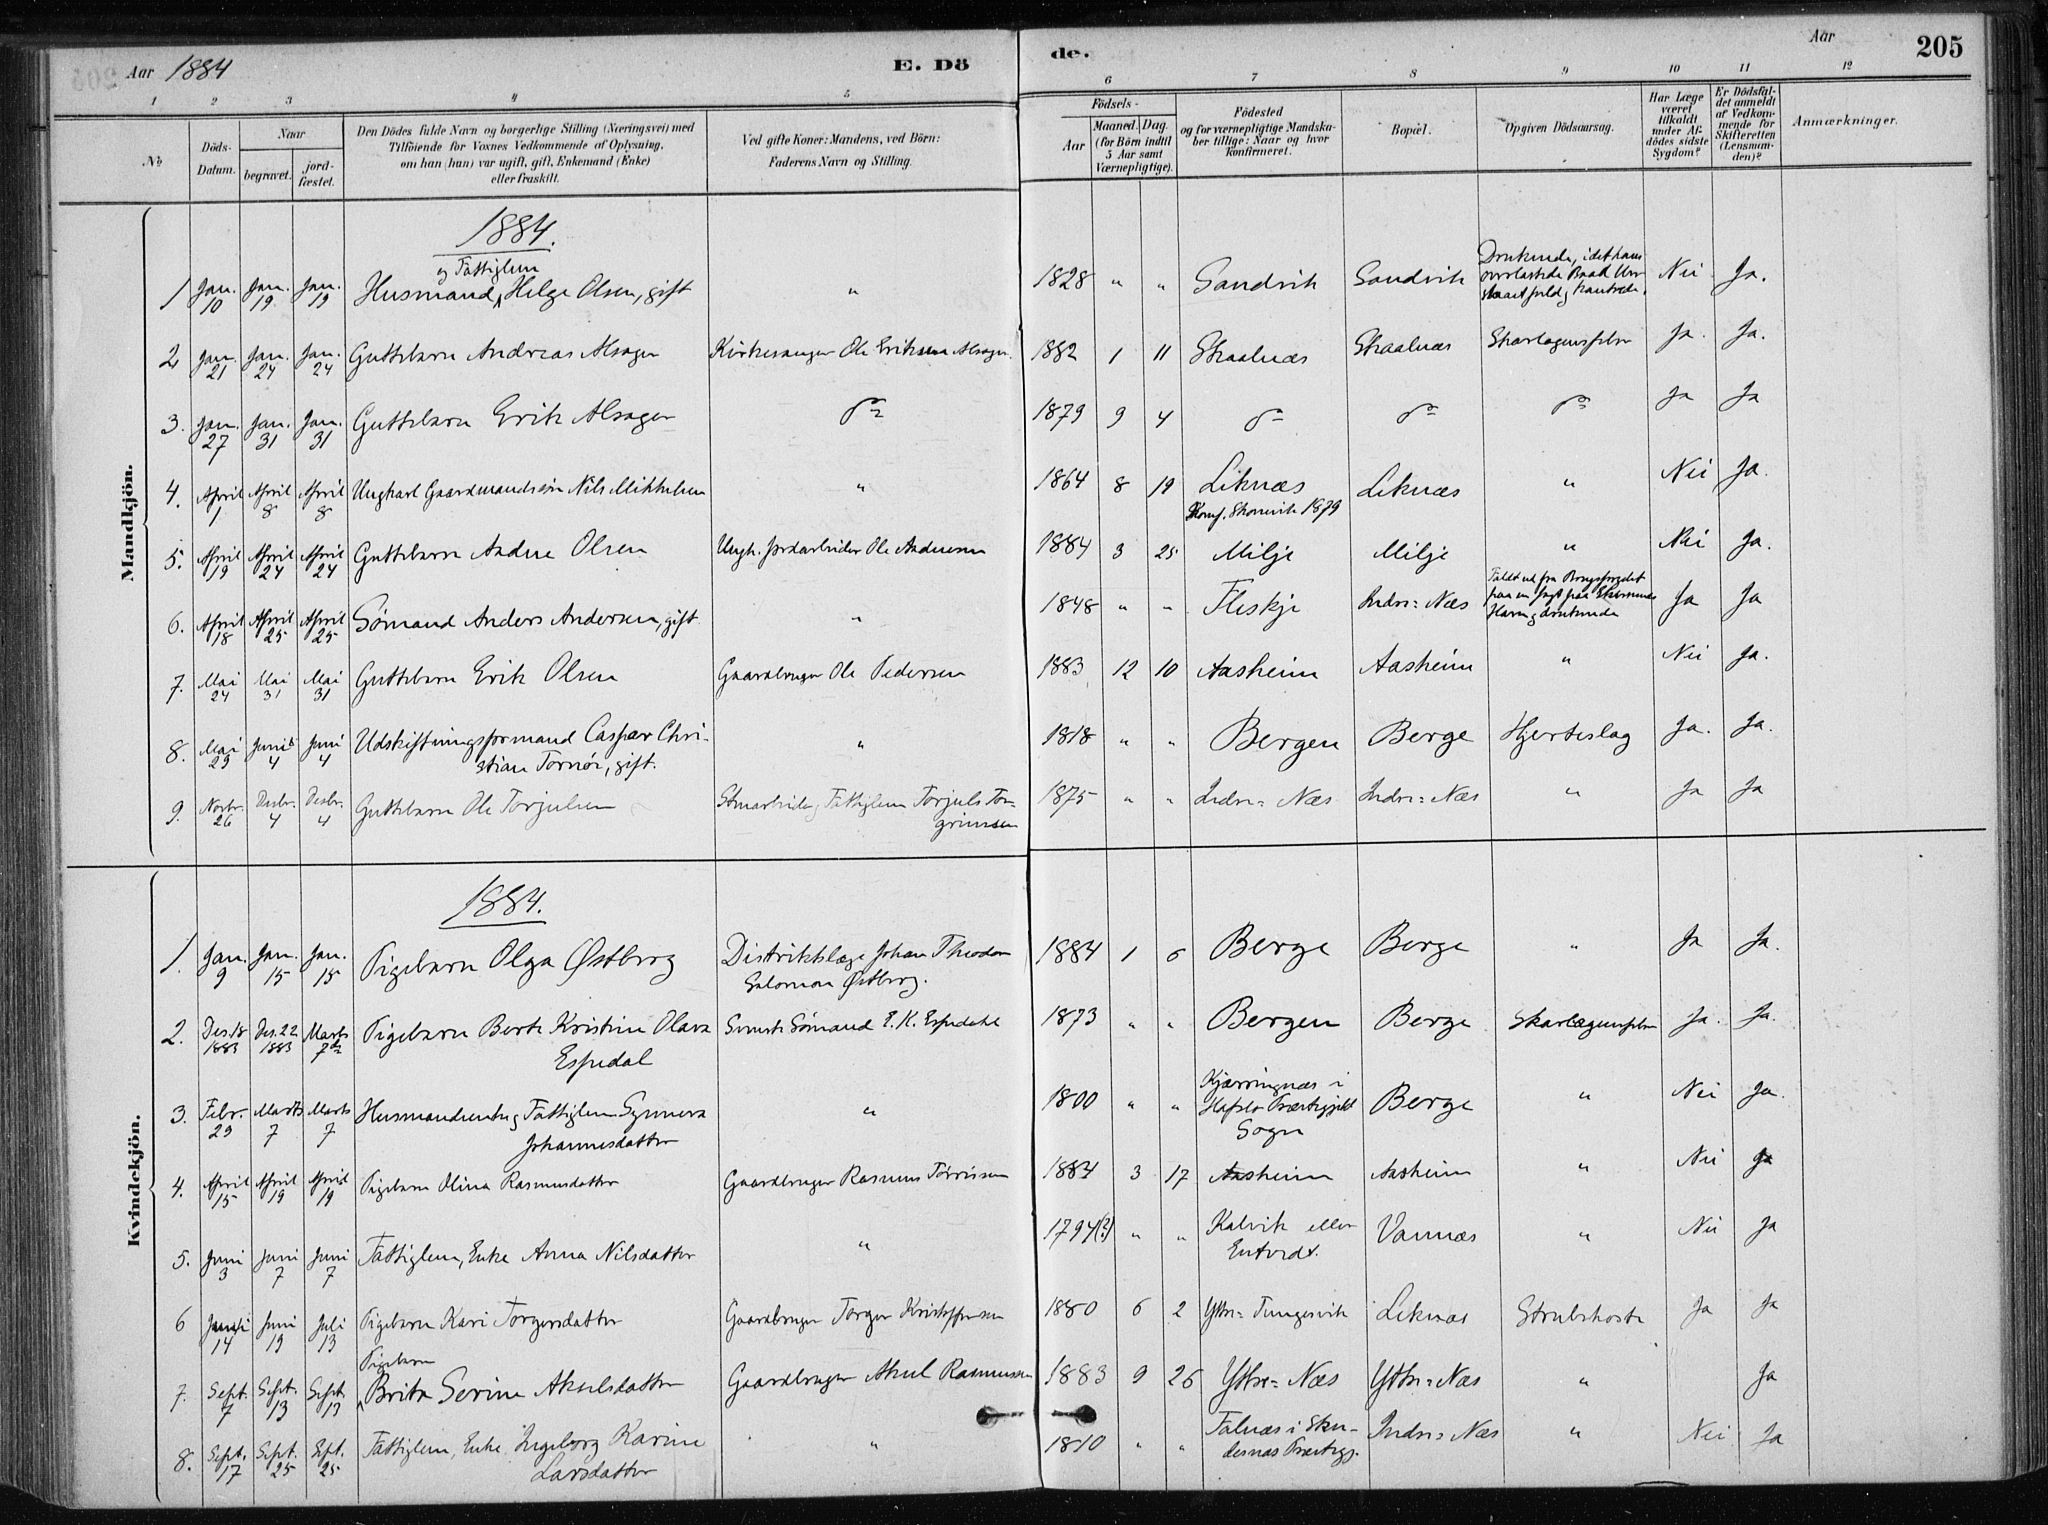 205
Aar 1884
E. Dö
de.
Aar
205
1 2 3 4 5 6 7 8 9 10 11 12
No
Döds-Datum.
Naar
begravet.
jord-fæstet.
Den Dödes fulde Navn og borgerlige Stilling (Næringsvei) med
Tilföiende for Voxnes Vedkommende af Oplysning,
om han (hun) var ugift, gift, Enkemand (Enke)
eller fraskilt.
Ved gifte Koner: Mandens, ved Börn:
Faderens Navn og Stilling.
Födsels-
Aar
Maaned. Dag.
(for Börn indtil
5 Aar samt
Værnepligtige).
Födested
og for værnepligtige Mandska-
ber tillige: Naar og hvor
konfirmeret.
Bopæl.
Opgiven Dödsaarsag.
Har Læge
været
tilkaldt
under Af-
dödes sidste
Sygdom?
Er Dödsfal-
det anmeldt
af Vedkom-
mende for
Skifteretten
(Lensman-
den)?
Anmærkninger.
Mandkjön.
1884.
1 Jan. 10 Jan. 19 Jan. 19 Husmand og Fattiglem Helge Olsen, gift " 1828 " " Sandvik Sandvik Druknede, idet hans overlastede Baad kantrede. Nei Ja.
2 Jan. 21 Jan. 24 Jan. 24 Guttebarn Andreas Alsager Kirkesanger Ole Eriksen Alsager. 1882 1 11 Skaalnæs Skaalnæs Skarlagensfeber Ja. Ja.
3. Jan. 27 Jan. 31 Jan. 31 Guttebarn Erik Alsager do 1879 9 4 do do do Ja Ja
4. April 1 April 8 April 8 Ungkarl Gaardmandssøn Nils Mikkelsen " 1864 8 19 Liknæs Konf. Skonevik 1879 Liknæs " Nei Ja.
5. April 19 April 24 April 24 Guttebarn Andree Olsen Ungk. Jordarbeider Ole Andersen 1884 3 25 Milje Milje " Nei Ja.
6. April 18 April 25 April 25 Sømand Anders Andersen, gift " 1848 " " Fleskje Indre=Næs Faldt ud fra paa en Jagt paa Havn og druknede Ja Ja
7. Mai 24 Mai 31 Mai 31 Guttebarn Erik Olsen Gaardbruger Ole Pedersen 1883 12 10 Aasheim Aasheim " Nei Ja.
8. Mai 29 Juni 4 Juni 4 Udskiftningsformand Caspar Chri-
stian Tornøe, gift. " 1818 " " Bergen Berge Hjerteslag Ja. Ja.
9. Novbr. 26 Decbr. 4 Decbr. 4 Guttebarn Ole Torjulsen Stenarbeider, Fattiglem Torjuls Tor-
grimsen 1875 " " Indre=Næs Indre=Næs " Ja Ja
Kvindekjön.
1884.
1. Jan. 9 Jan. 15 Jan. 15 Pigebarn Olga Østberg Distriktslæge Johan Theodor
Salomon Østberg. 1884 1 6 Berge Berge " Ja Ja.
2. Des. 18 1883 Des. 22 1883 Marts 7de Pigebarn Berte Kristine Olava
Espedal Svensk Sømand E. K. Espedahl 1873 " " Bergen Berge Skarlagensfeber Ja. Ja.
3. Febr. 29 Marts 7 Marts 7 Husmandsenke og Fattiglem Synneva
Johannesdatter " 1800 " " Kjærringnæs i
Hafslo Præstegjeld
Sogn Berge " Nei Ja.
4. April 15 April 19 April 19 Pigebarn Olina Rasmusdatter Gaardbruger Rasmus Tørrisen 1884 3 17 Aasheim Aasheim " Nei Ja
5. Juni 3 Juni 7 Juni 7 Fattiglem, Enke Anna Nilsdatter " 1794(?) " " Kalvik eller
Entvedt. Vannæs " Nei Ja
6 Juni 14 Juni 19 Juli 13 Pigebarn Kari Torgersdatter Gaardbruger Torger Kristoffersen 1880 6 2 Yttre=Tungesvik Liknæs Strubehoste Ja Ja
7. Sept. 7 Sept. 13 Sept. 13 Pigebarn Brita Serine Akselsdatter Gaardbruger Aksel Rasmussen 1883 9 26 Yttre=Næs Yttre=Næs " Ja
8. Sept. 17 Sept. 25 Sept. 25 Fattiglem, Enke Ingeborg Karine
Larsdatter " 1810 " " Falnæs i Sku-
desnæs Præstegj. Indre=Næs " Nei Ja